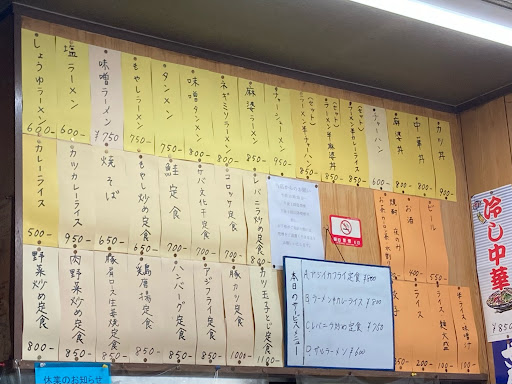 しょうゆラーメン 600-
塩ラーメン 600-
味噌ラーメン ¥750
もやしラーメン 750-
タンメン 750-
味噌タンメン 800-
ネギミソラーメン 800-
麻婆ラーメン 800-
チャーシューメン 950-
(セット)ラーメン半チャーハン 850-
(セット)ラーメン半麻婆丼 850-
(セット)ラーメン半カレーライス 850-
チャーハン 600-
麻婆丼 800-
中華丼 800-
カツ丼 900-
カレーライス 500
カツカレーライス 950
焼そば 650
もやし炒め定食 650
鮭定食 700-
サバ文化干定食 700-
コロッケ定食 700-
レバニラ炒め定食
お酒
ビール 550
野菜炒め定食 800
肉野菜炒め定食 850
豚肩ロース生姜焼定食 850-
鶏唐揚定食 850-
ハンバーグ定食 850-
アジフライ定食 850-
豚カツ定食 1000-
カツ玉子とじ定食 1100
本日のサービスメニュー
A. アジイカフライ定食 ¥800
B ラーメン+カレーライス ¥800
C レバニラ炒め定食 ¥750
D. ザルラーメン ¥600
ライス 200
ライス 麺大盛 100-
半ライス 味噌汁 100-
冷し中華
¥850
休業のお知らせ